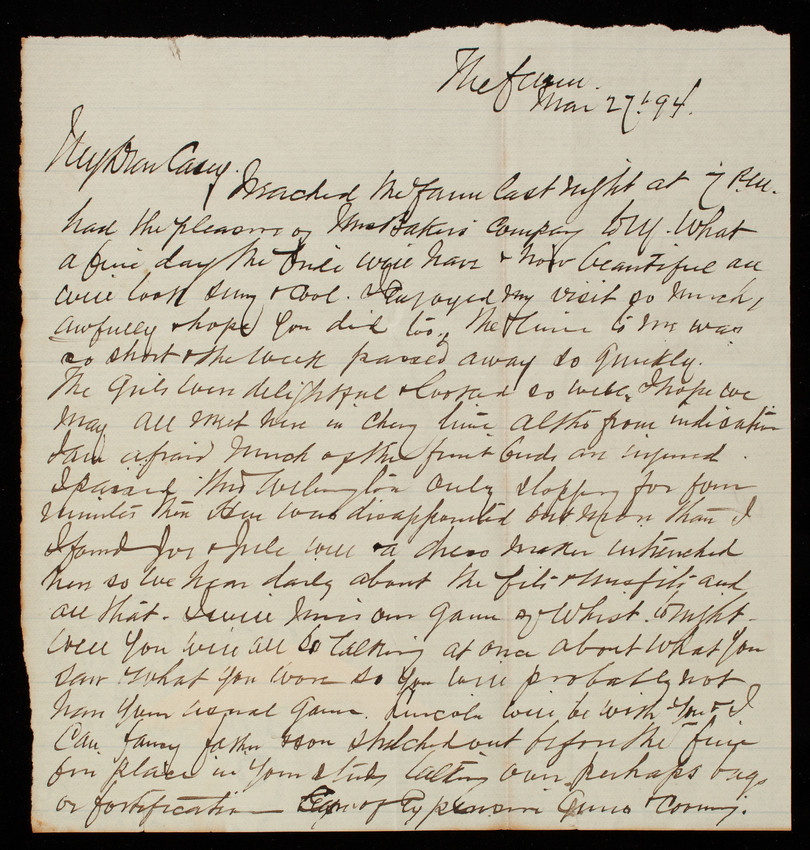 The farm.
Mar 27th 94.
My Dear Casey.
I reached the farm last night at 7 P.M.
had the pleasure of Mrs Bakers company to N.Y. What
a fine day the will have & how beautiful all
will look sunny & cool. I enjoyed my visit so much,
awfully & hope you did too, the time to me was
so short & the week passed away so quickly.
The Girls were delightful & looked so well. I hope we
may all meet here in cherry time altho from indication
I am afraid much of the fruit buds are injured.
I passed thro Wilmington only stopping for four
minutes then was disappointed but more than I
I found Joe & Jule well & a dress maker intrenched
here so we hear daily about the fits & misfits and
all that. I will miss our game of Whist to night.
Well you will all be talking at once about what you
saw & what you wore so you will probably not
have your usual game. Lincoln will be with you & I
can fancy father & son stretched out before the fine
fire place in your study talking over perhaps bugs
or fortification of expensive Guns & coming.